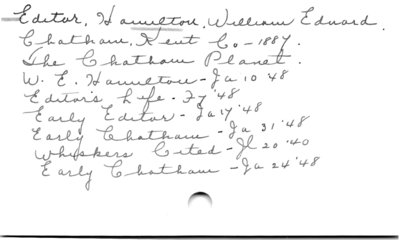 Editor, Hamilton, William Edward.
Chatham, Kent Co. - 1887.
The Chatham Planet.
W. E. Hamilton - Ja 10 '48
Editor's Life - Fy '48
Early Editor - Ja 17 '48
Early Chatham - Ja 31 '48
Whiskers Cited - Jl 20 '40
Early Chatham - Ja 24 '48